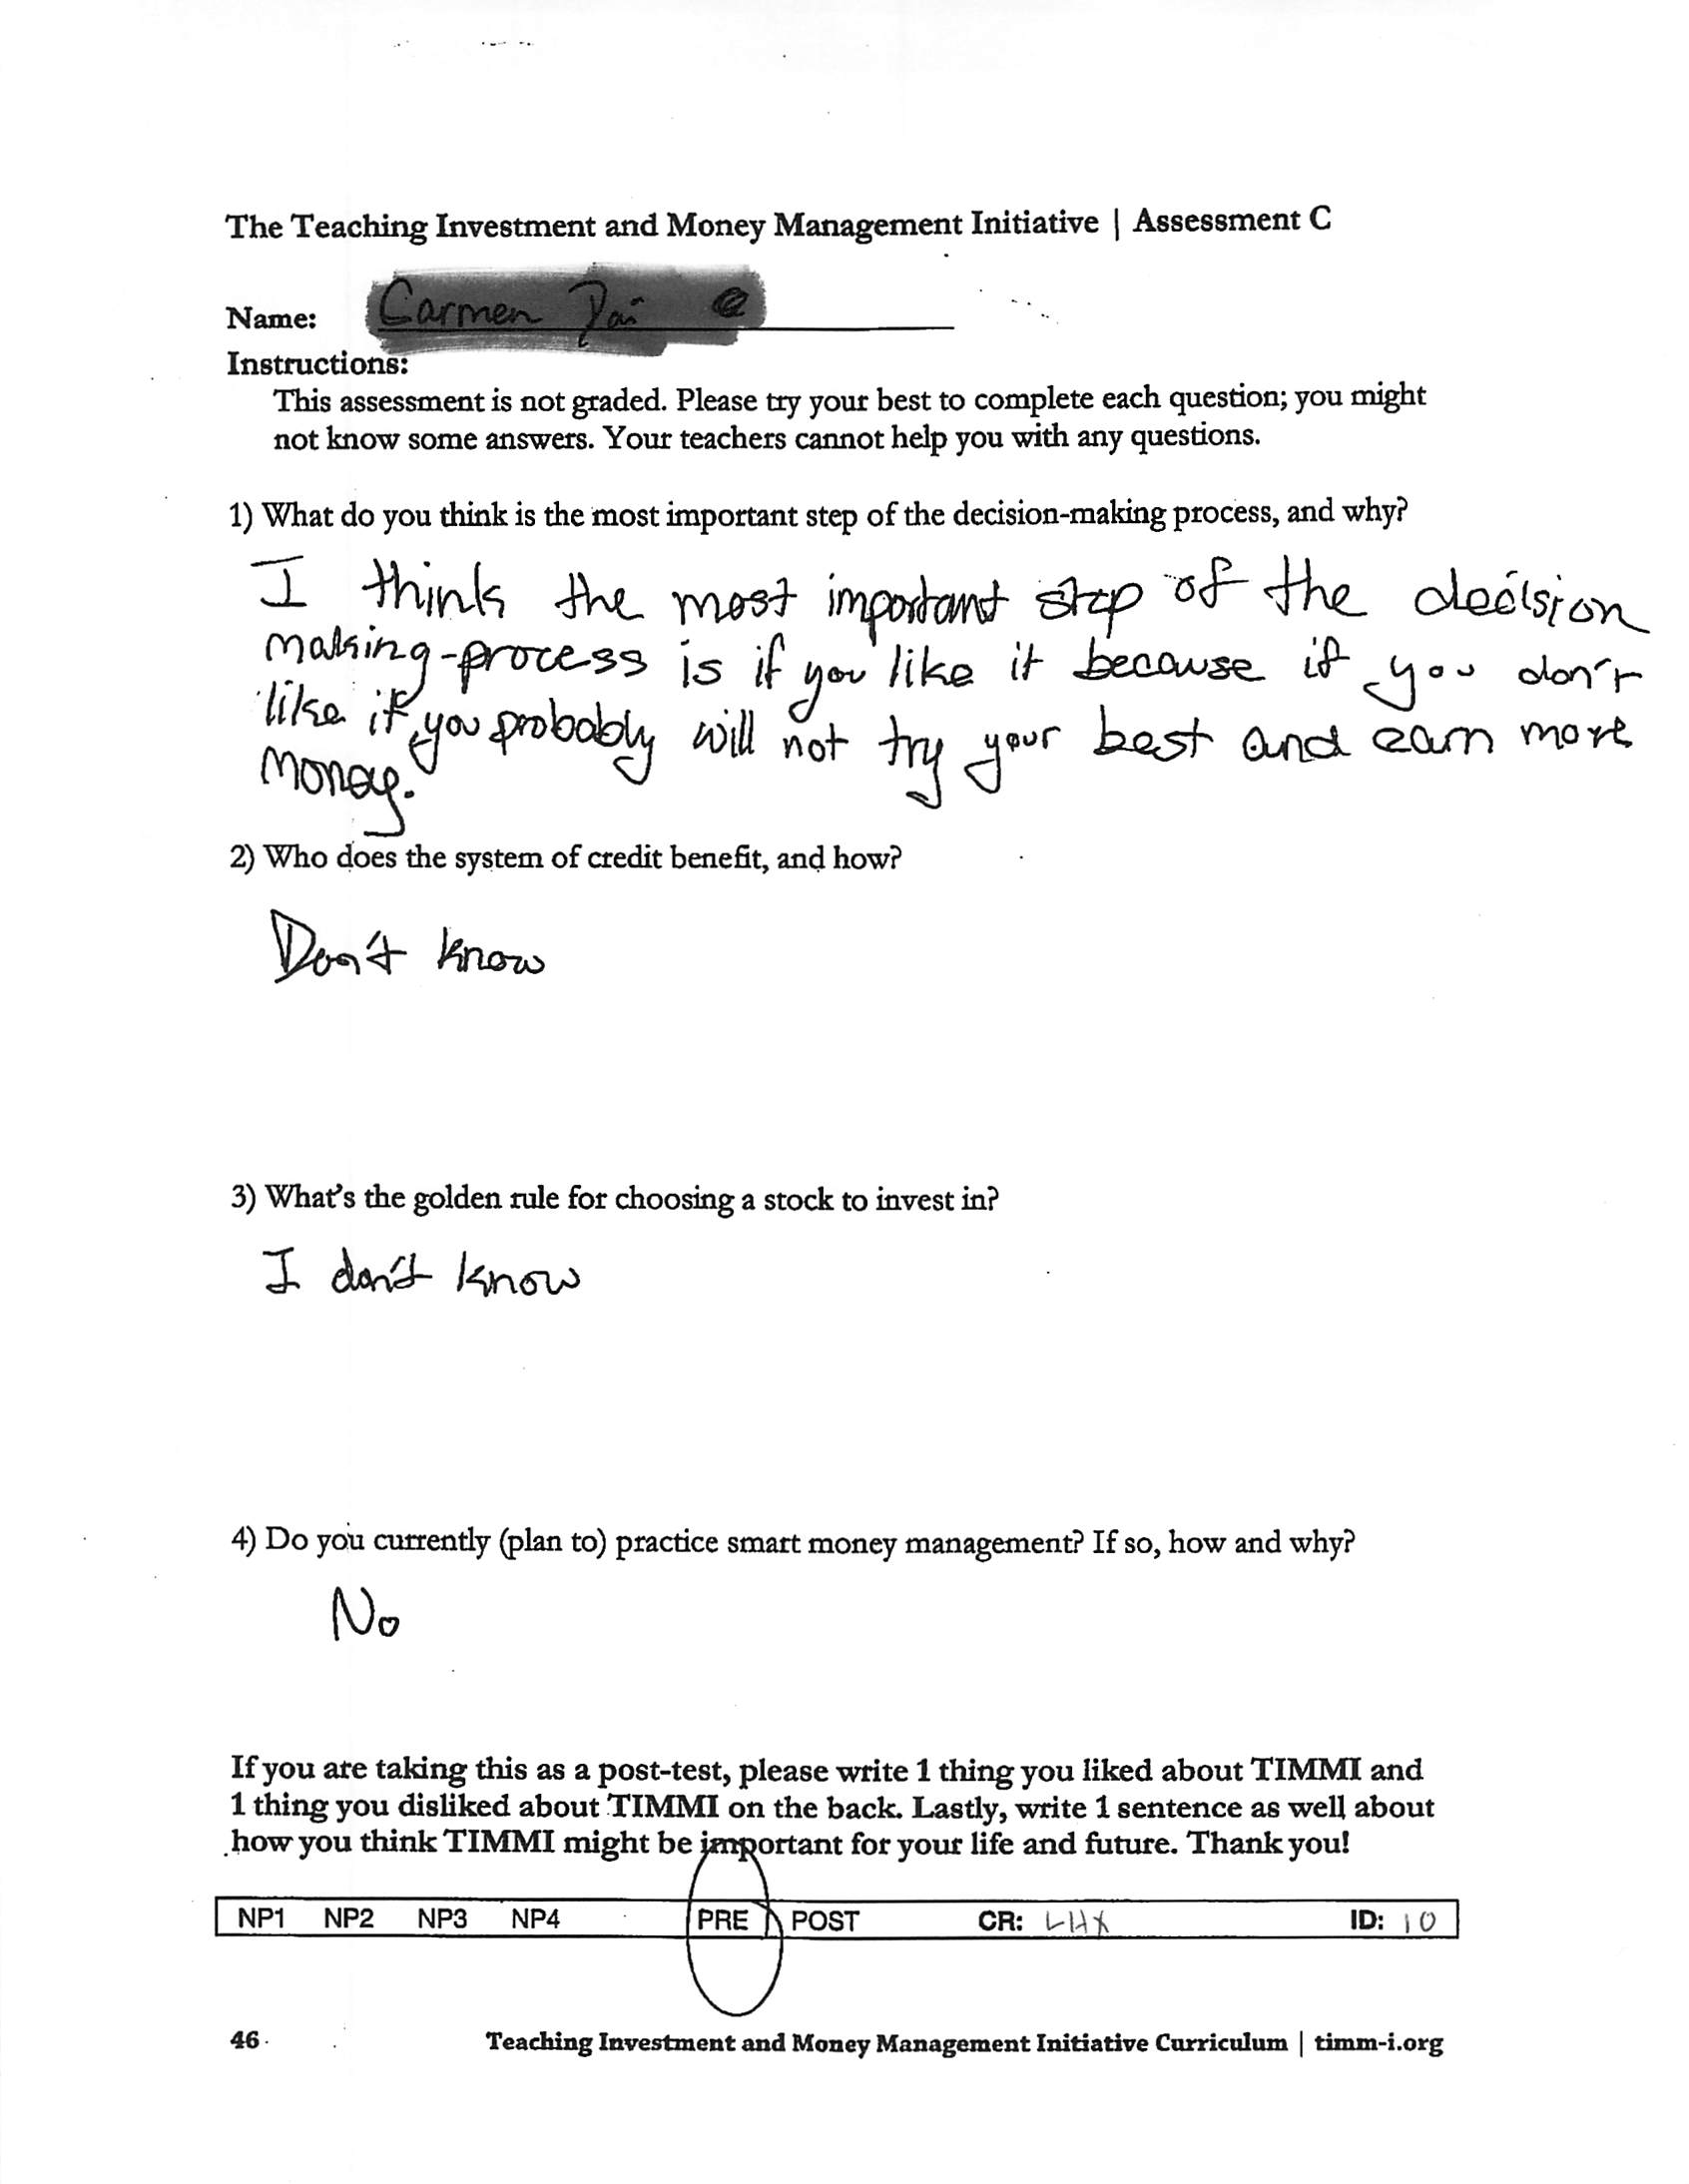 The Teaching Investment and Money Management Initiative | Assessment C
Name:
Instructions:
This assessment is not graded. Please try your best to complete each question; you might
not know some answers. Your teachers cannot help you with any questions.
1) What do you think is the most important step of the decision-making process, and why?
I think the most important step of the decision
making-process is if you like it because if you don't
like it, you probably will not try your best and earn more
money.
2) Who does the system of credit benefit, and how?
Don't know
3) What's the golden rule for choosing a stock to invest in?
I don't know
4) Do you currently (plan to) practice smart money management? If so, how and why?
No
If you are taking this as a post-test, please write 1 thing you liked about TIMMI and
1 thing you disliked about TIMMI on the back. Lastly, write 1 sentence as well about
how you think TIMMI might be important for your life and future. Thank you!
NP1 NP2 NP3 NP4 PRE POST CR: ID: 10
46 Teaching Investment and Money Management Initiative Curriculum | timm-i.org